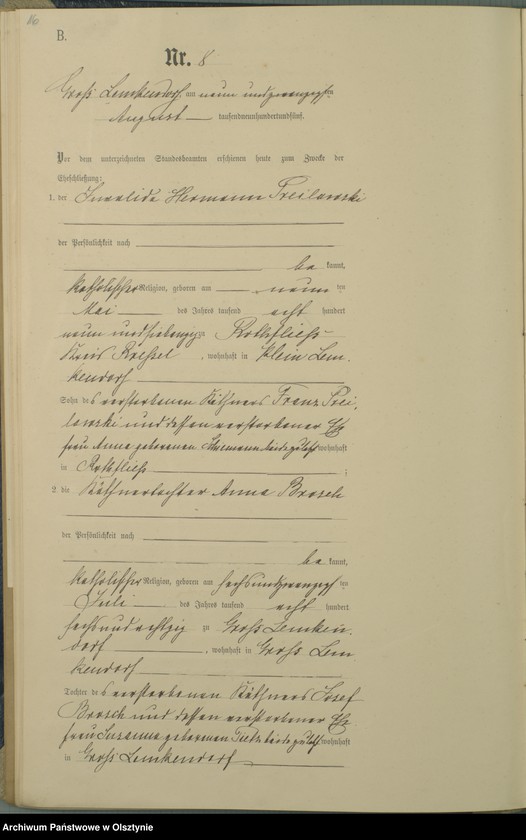 B.
Nr. 8
Groß Lemkendorf am neun und zwanzigsten
August tausendneunhundertundfünf.
Vor dem unterzeichneten Standesbeamten erschienen heute zum Zwecke der
Eheschließung:
1. der Invalide Hermann
der Persönlichkeit nach
be kannt,
katholischer Religion, geboren am neun ten
Mai des Jahres tausend acht hundert
neun und siebenzig zu Rothfließ
Kreis Rößel, wohnhaft in Klein Lem-
kendorf
Sohn des verstorbenen Käthners Franz
und dessen verstorbener Ehe
frau Anna geborenen beide zuletzt wohnhaft
in Rothfließ ;
2. die Käthnertochter Anna Brosch
der Persönlichkeit nach
be kannt,
katholischer Religion, geboren am sechsundzwanzigs ten
Juli des Jahres tausend acht hundert
sechsundachtzig zu Groß Lemken-
dorf, wohnhaft in Groß Lem
kendorf
Tochter des verstorbenen Käthners Josef
Brosch und dessen verstorbener Ehe
frau Susanna geborenen beide zuletzt wohnhaft
in Groß Lemkendorf
Archiwum Państwowe w Olsztynie